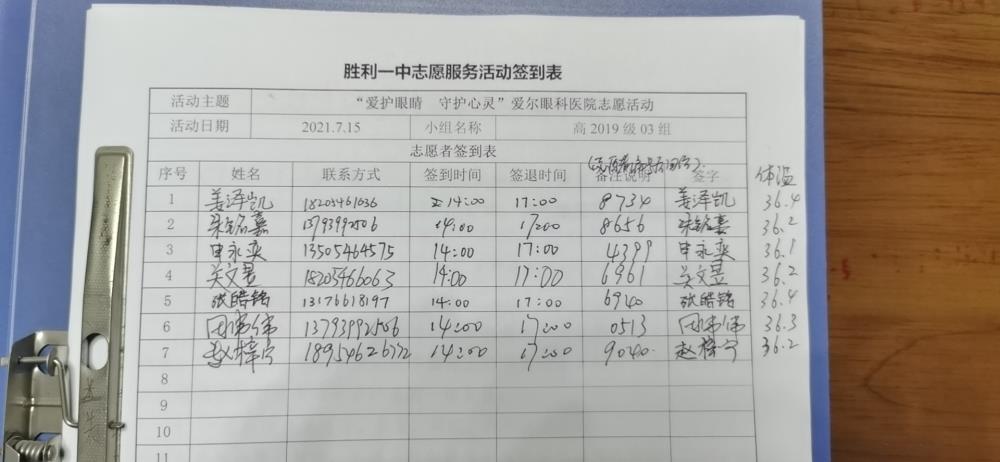 胜利一中志愿服务活动签到表
活动主题 “爱护眼睛 守护心灵”爱尔眼科医院志愿活动
活动日期 2021.7.15 小组名称 高 2019 级 03 组
志愿者签到表
序号 姓名 联系方式 签到时间 签退时间 备注说明 签字 体温
1 姜泽凯 18205461036 14:00 17:00 8734 姜泽凯 36.4
2 宋铭嘉 13793992506 14:00 17:00 8656 宋铭嘉 36.2
3 申永奕 13505464575 14:00 17:00 4399 申永奕 36.1
4 关文昱 18205466063 14:00 17:00 6961 关文昱 36.2
5 张皓铭 13176618197 14:00 17:00 6940 张皓铭 36.4
6 13793992506 14:00 17:00 0513 36.3
7 赵梓宁 14:00 17:00 9040 赵梓宁 36.2
8
9
10
11